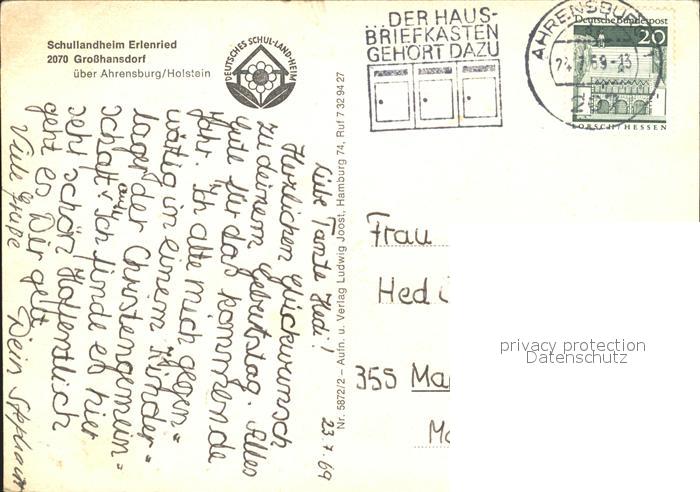 Schullandheim Erlenried
2070 Großhansdorf
über Ahrensburg/Holstein
DEUTSCHES SCHUL-LAND-HEIM
...DER HAUS-
BRIEFKASTEN
GEHÖRT DAZU
AHRENSBURG
24.7.69-13
207
Deutsche Bundespost
20
LORSCH/HESSEN
Nr. 5872/2 – Aufn. u. Verlag Ludwig Joost, Hamburg 74, Ruf 7 32 94 27
23.7.69
Liebe Tante Hedi!
Herzlichen Glückwunsch
zu deinem Geburtstag. Alles
gute für das kommende
Jahr. Ich alte mich gegen-
wärtig in einem "Kinder-
lager der Christengemein-
schaft". Ich finde es hier
auch
sehr schön. Hoffentlich
geht es Dir gut.
Viele Grüße
Dein Stephan
Frau
Hedi
355 Ma
Ma
privacy protection
Datenschutz